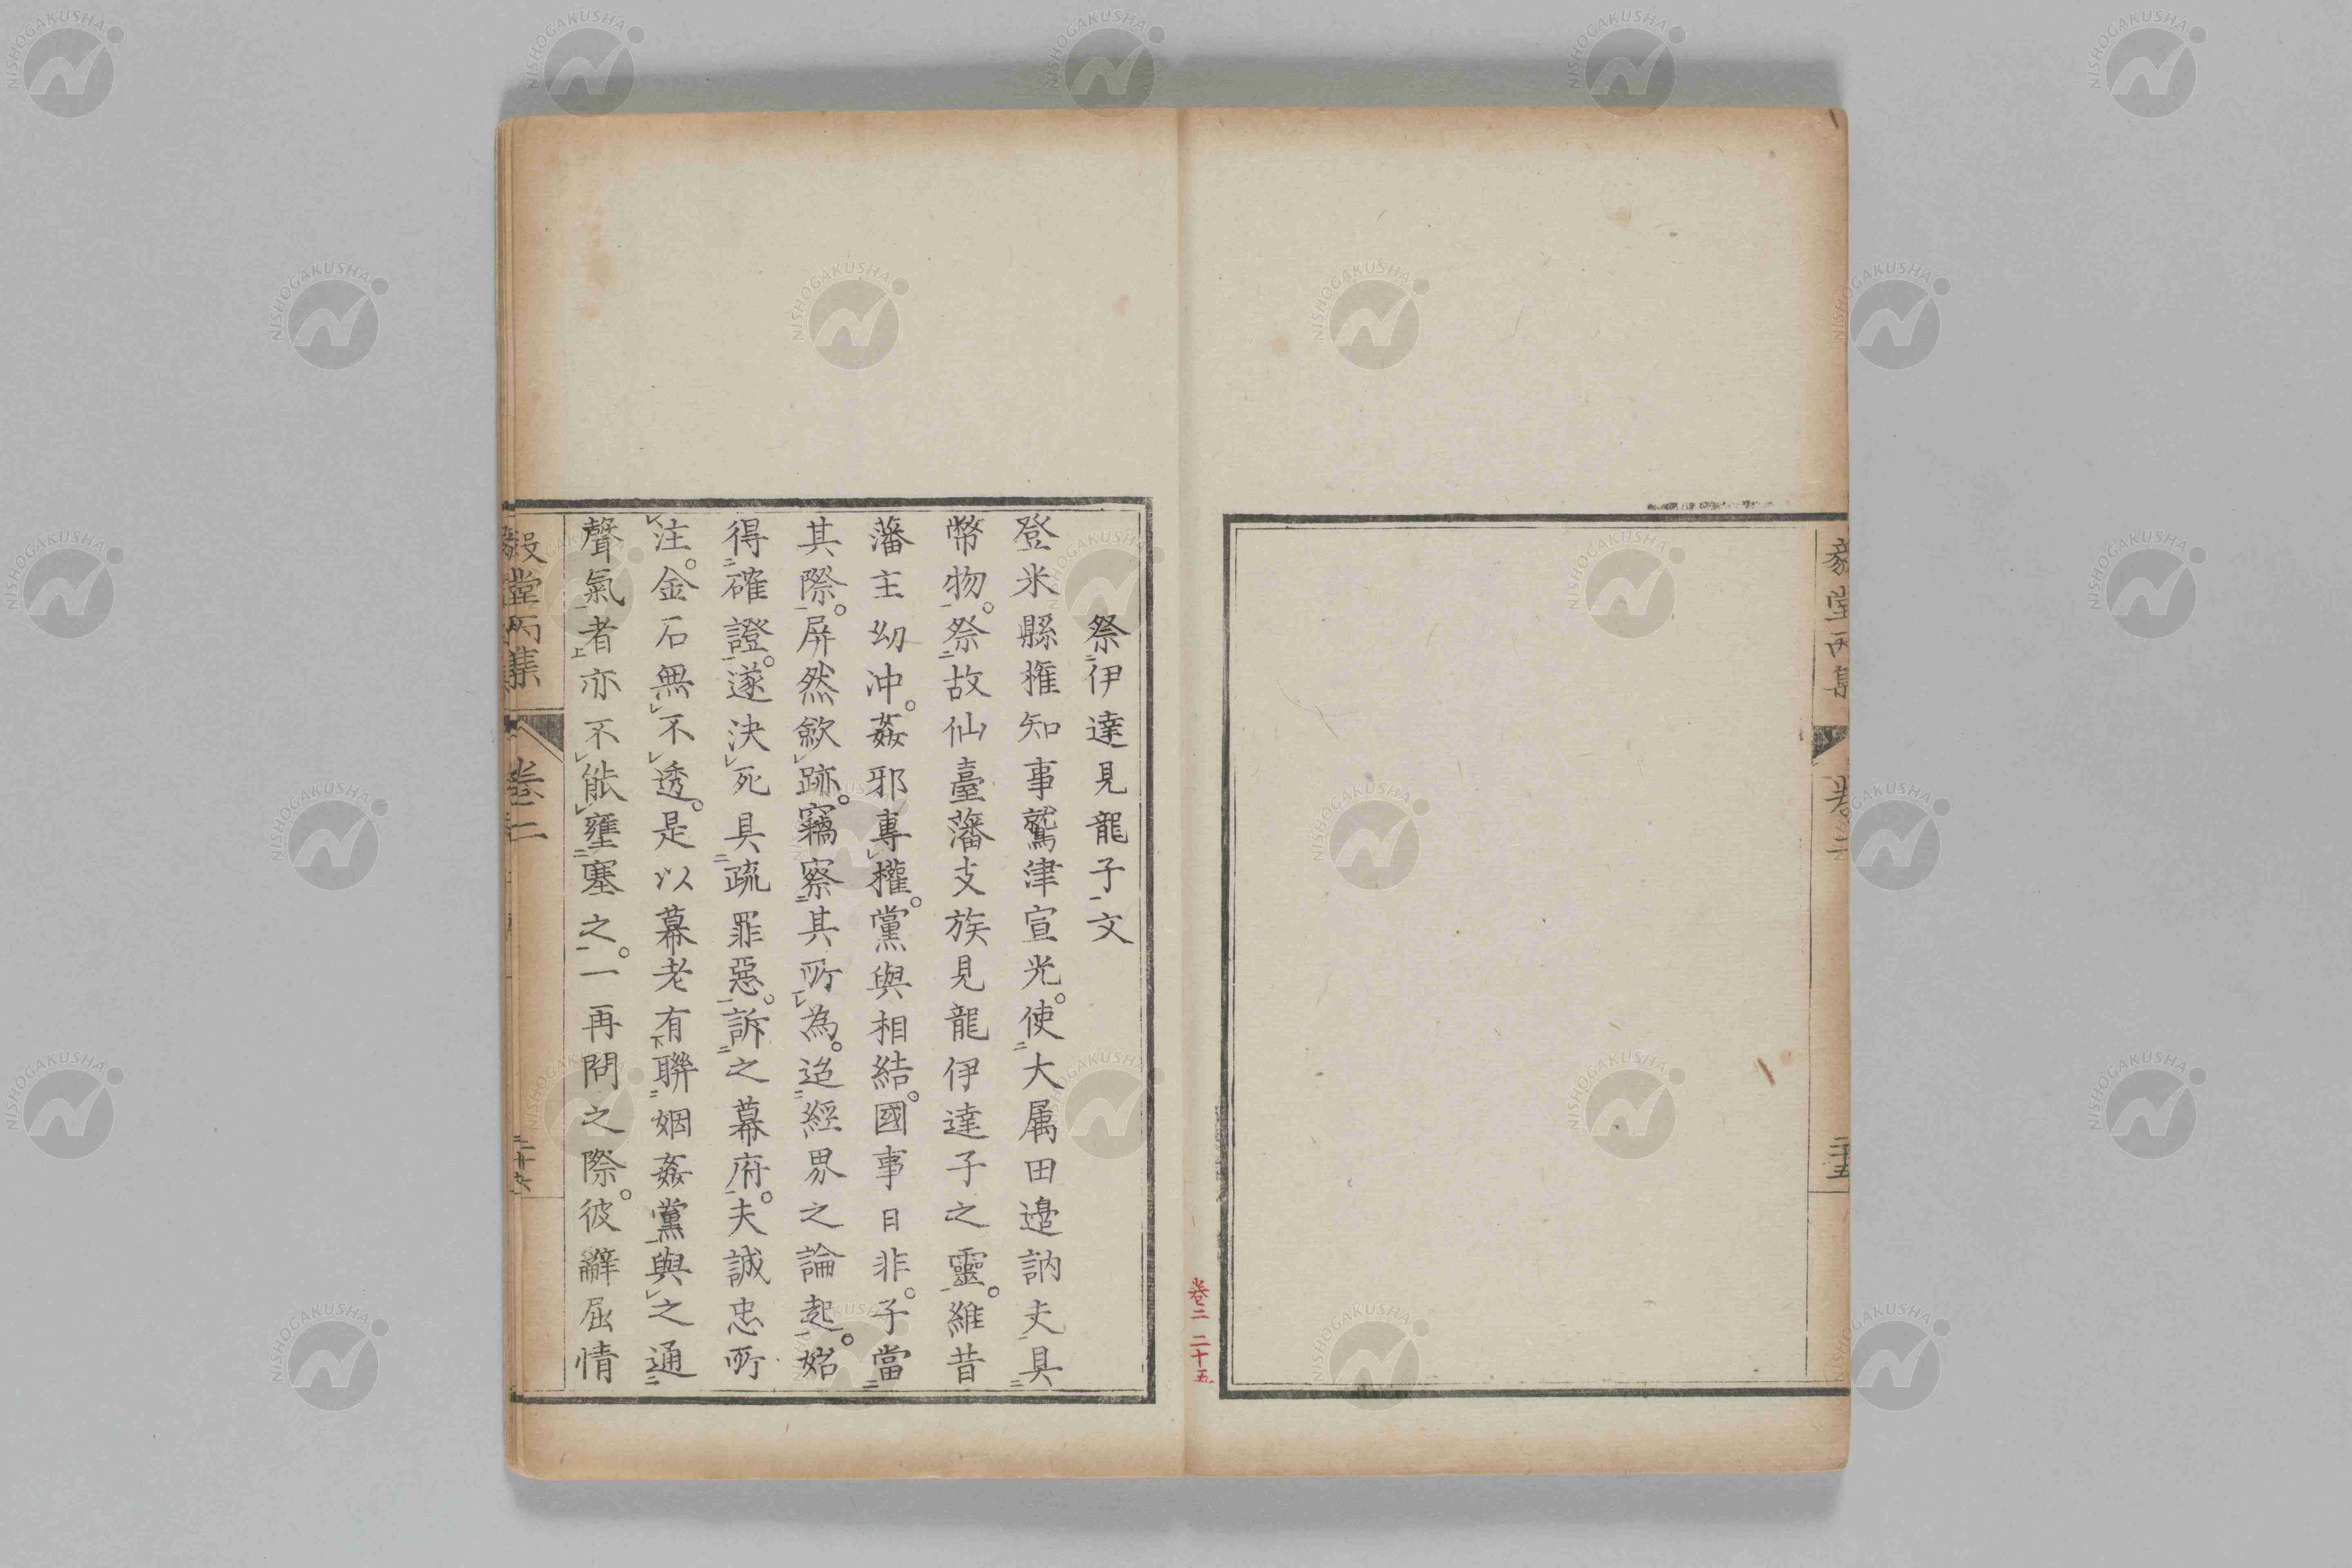 毅堂丙集
卷二
二十五
卷二 二十五
祭伊達見龍子文
登米縣権知事鷲津宣光。使大属田邉訥夫具
幣物。祭故仙臺藩支族見龍伊達子之靈。維昔
藩主幼冲。姦邪專權。黨與相結。國事日非。子當
其際。屏然歛跡。竊察其所為。迨經界之論起。始
得確證。遂決死具疏罪惡。訴之幕府。夫誠忠所
注。金石無不透。是以幕老有聯姻姦黨與之通
聲氣者亦不能壅塞之。一再問之際。彼辭屈情
毅堂丙集
卷二
二十六
NISHOGAKUSHA